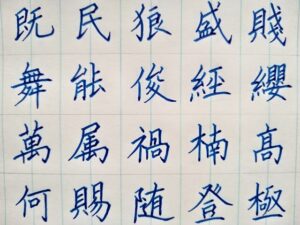 既民狼盛賤
舞能俊經纓
萬属禍楠高
何賜随登極